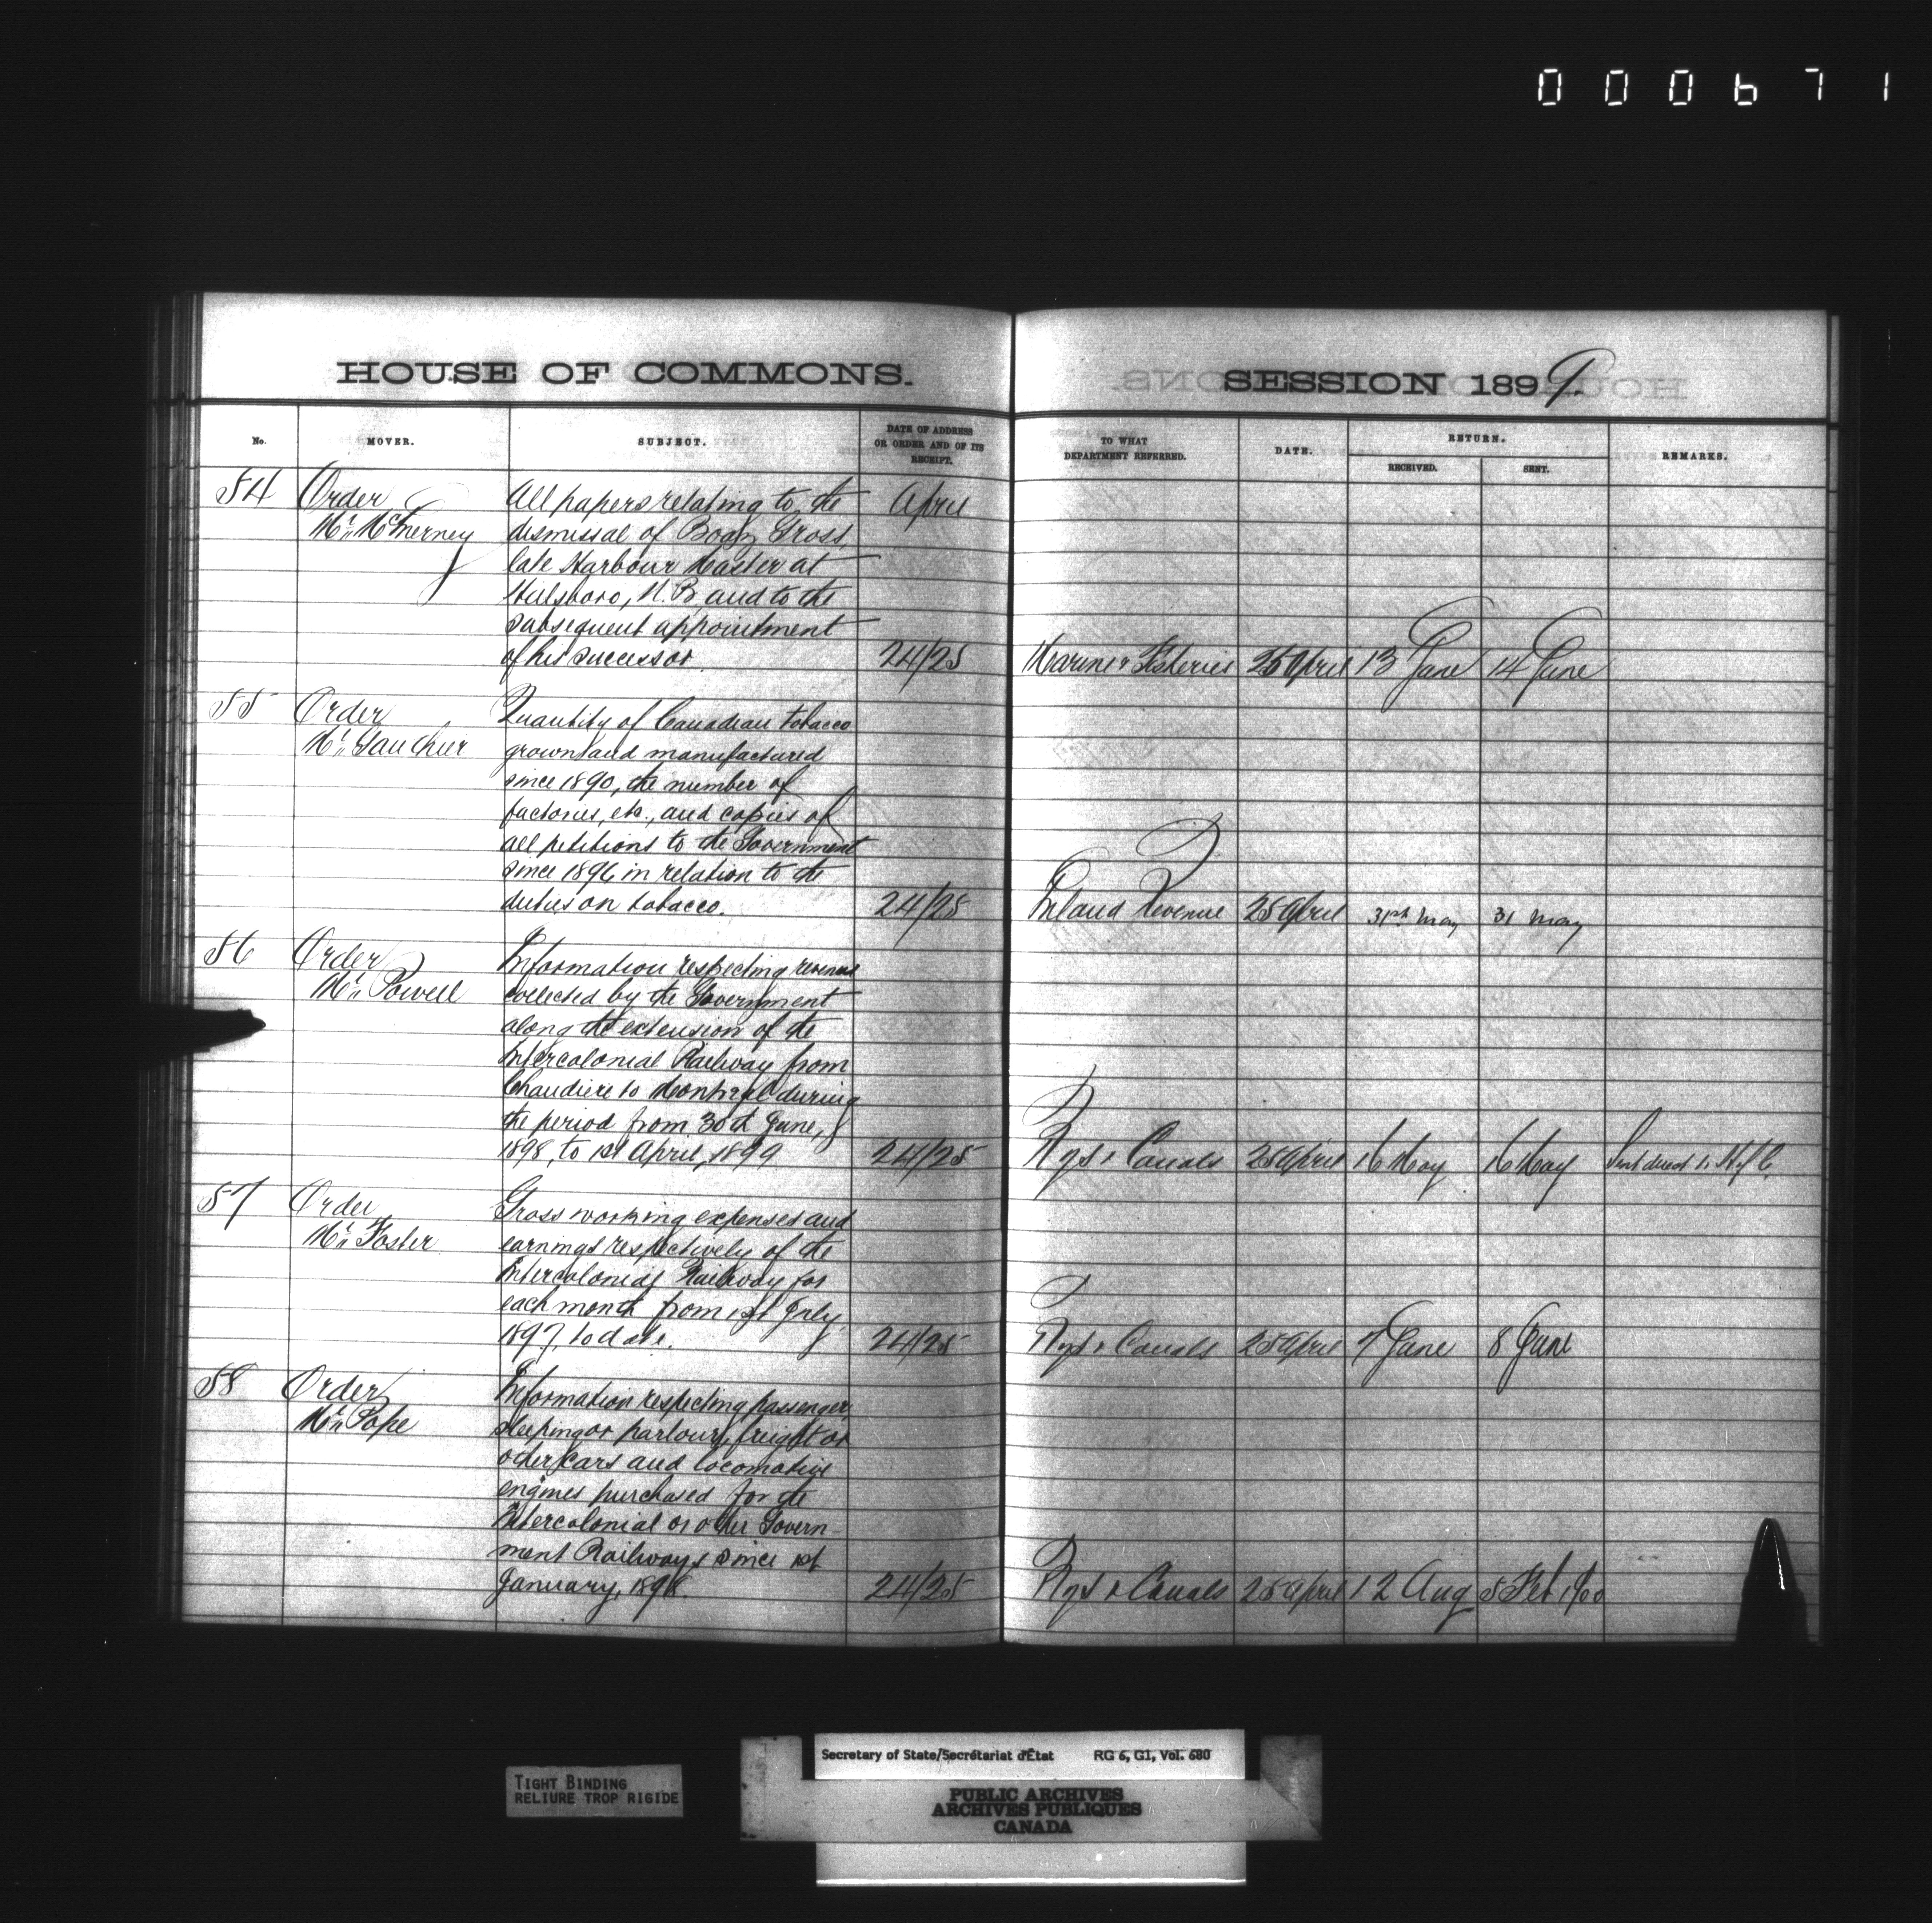 000671
HOUSE OF COMMONS.
SESSION 1899.
No.
MOVER.
SUBJECT.
DATE OF ADDRESS
OR ORDER AND OF ITS
RECEIPT.
TO WHAT
DEPARTMENT REFERRED.
DATE.
RETURN.
RECEIVED.
SENT.
REMARKS.
54 Order All papers relating to the April
Mr. McInerney dismissal of Gross
late Harbour Master at
Hillsboro, N.B. and to the
subsequent appointment
of his successor. 24/25 Marine & Fisheries 25 April 13 June 14 June
55 Order Quantity of Canadian tobacco
Mr. Gauthier grown and manufactured
since 1890, the number of
factories, etc., and copies of
all petitions to the Government
since 1896 in relation to the
duties on tobacco. 24/25 Inland Revenue 25 April 31st May 31 May
56 Order Information respecting revenue
Mr. Powell collected by the Government
along the extension of the
Intercolonial Railway from
Chaudiere to Montreal during
the period from 30th June,
1898, to 1st April, 1899 24/25 Rys & Canals 25 April 16 May 16 May Sent direct to H of C.
57 Order Gross working expenses and
Mr. Foster earnings respectively of the
Intercolonial Railway for
each month from 1st July,
1897, to date. 24/25 Rys & Canals 25 April 7 June 8 June
58 Order Information respecting passenger,
Mr. Pope sleeping or parlour, freight or
other cars and locomotive
engines purchased for the
Intercolonial or other Govern-
ment Railways since 1st
January, 1898. 24/25 Rys & Canals 25 April 12 Aug 5 Feb 1900
TIGHT BINDING
RELIURE TROP RIGIDE
Secretary of State/Secrétariat d'État RG 6, G1, Vol. 680
PUBLIC ARCHIVES
ARCHIVES PUBLIQUES
CANADA